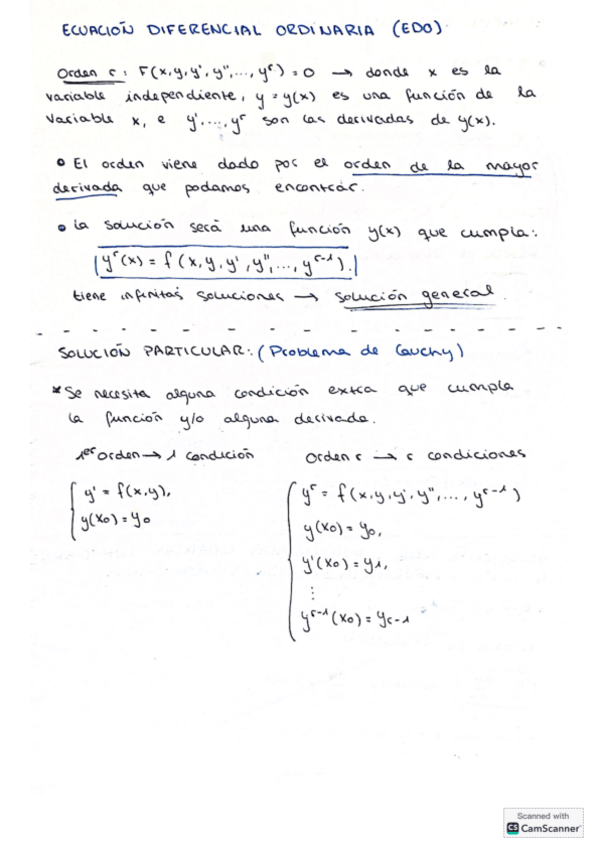 ECUACIÓN DIFERENCIAL ORDINARIA (EDO)
Orden r: F(x,y,y',y'',...,yʳ)=0 → donde x es la
variable independiente, y=y(x) es una función de la
variable x, e y',...,yʳ son las derivadas de y(x).
• El orden viene dado por el orden de la mayor
derivada que podamos encontrar.
• La solución será una función y(x) que cumpla:
yʳ(x) = f(x,y,y',y'',...,yʳ⁻¹).
tiene infinitas soluciones → solución general
SOLUCIÓN PARTICULAR: (Problema de Cauchy)
* Se necesita alguna condición extra que cumpla
la función y/o alguna derivada.
1er orden → 1 condición
y' = f(x,y),
y(x₀) = y₀
orden r → r condiciones
yʳ = f(x,y,y',y'',...,yʳ⁻¹)
y(x₀) = y₀,
y'(x₀) = y₁,
⋮
yʳ⁻¹(x₀) = yᵣ₋₁
Scanned with
CS CamScanner